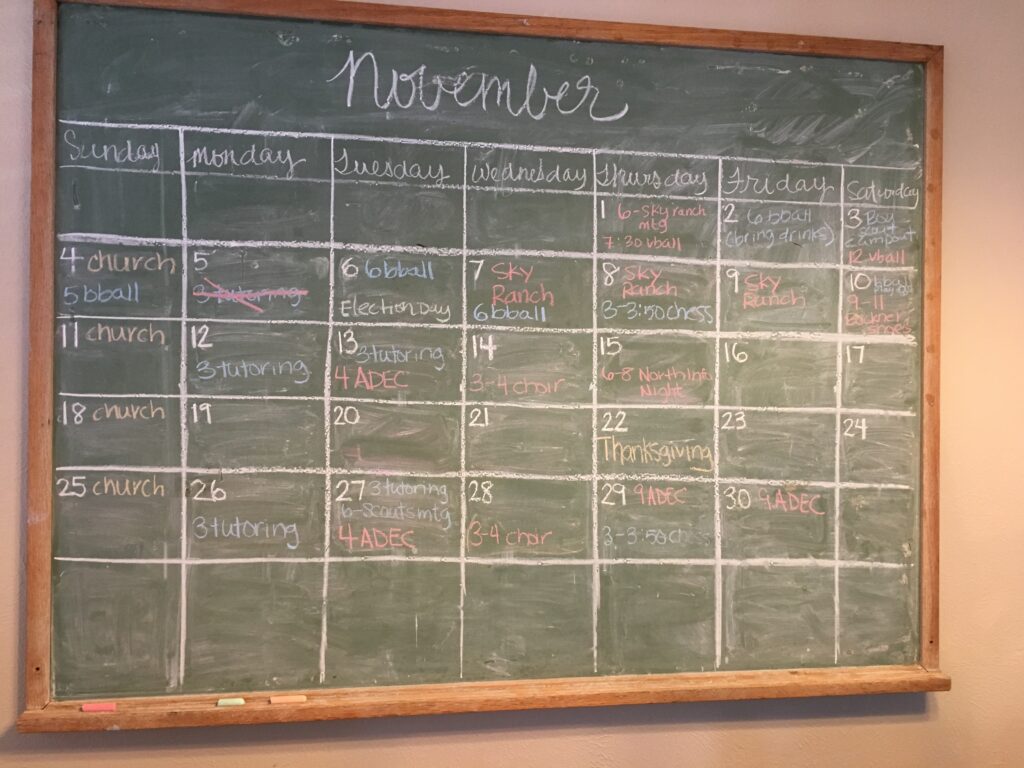 November
Sunday Monday Tuesday Wednesday Thursday Friday Saturday
1 6-Sky ranch
mtg
7:30 vball
2 6 bball
(bring drinks)
3 Boy
scout
campout
12 vball
4 church
5 bball
5
3 tutoring
6 6 bball
Election Day
7 Sky
Ranch
6 bball
8 Sky
Ranch
3-3:50 chess
9 Sky
Ranch
10
9-11
Buckner
shoes
11 church
12
3 tutoring
13 3 tutoring
4 ADEC
14
3-4 choir
15
6-8 North Info
Night
16
17
18 church
19
20
21
22
Thanksgiving
23
24
25 church
26
3 tutoring
27 3 tutoring
6-Scouts mtg
4 ADEC
28
3-4 choir
29 9 ADEC
3-3:50 chess
30 9 ADEC